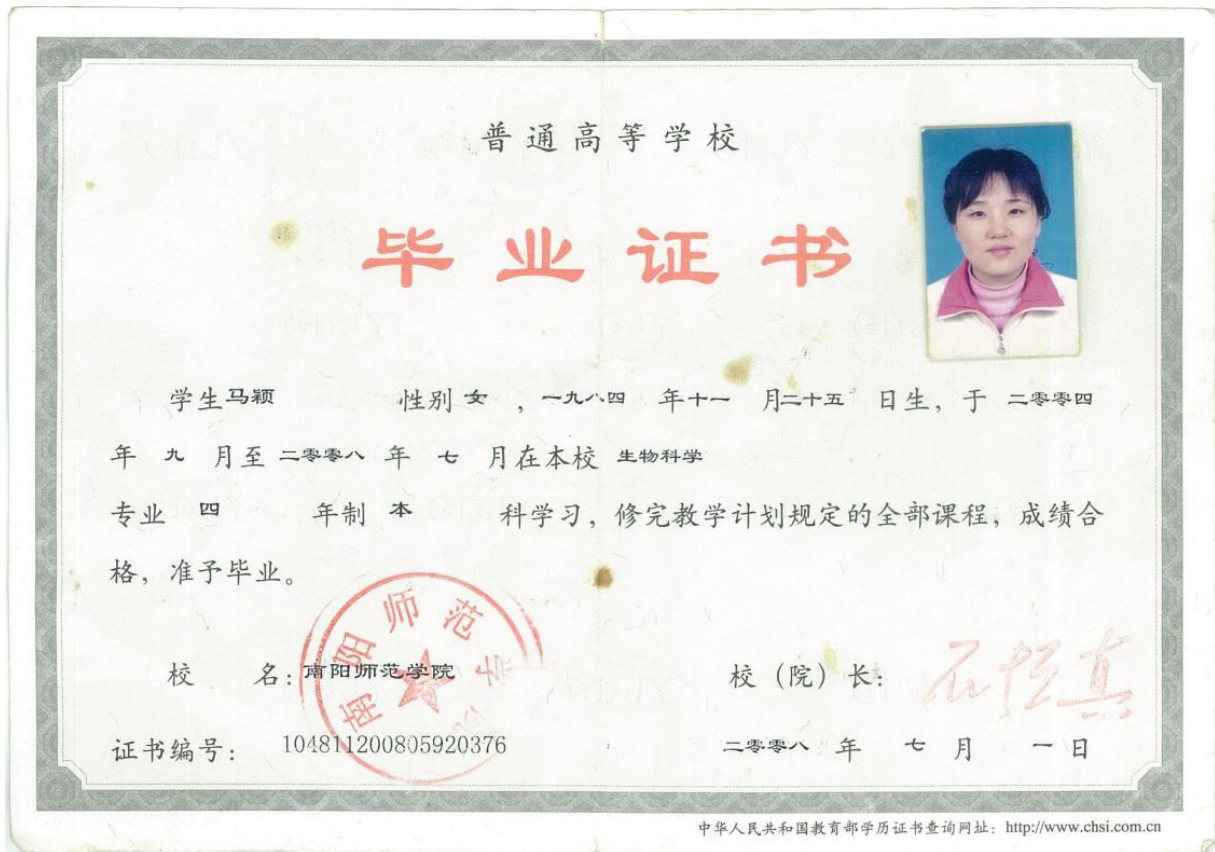 普通高等学校
毕业证书
学生 马颖 性别 女 ，一九八四 年 十一 月 二十五 日生，于 二零零四
年 九 月至 二零零八 年 七 月在本校 生物科学
专业 四 年制 本 科学习，修完教学计划规定的全部课程，成绩合
格，准予毕业。
南阳师范学院
校 名：南阳师范学院 校（院）长：石恒真
证书编号：104811200805920376 二零零八 年 七 月 一 日
中华人民共和国教育部学历证书查询网址：http://www.chsi.com.cn